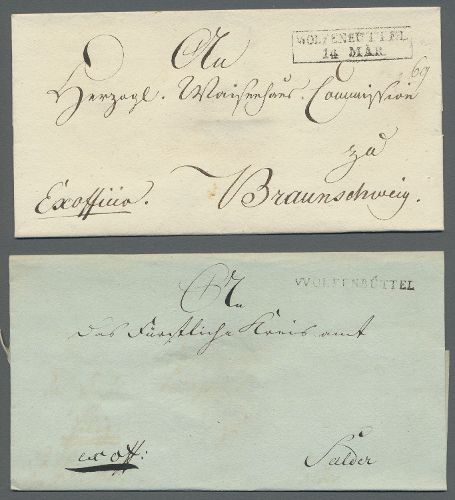 WOLFENBÜTTEL
14 MÄR.
An
69
Herzogl. Waisenhaus. Commission
zu
Exofficio. Braunschweig.
WOLFENBÜTTEL
An
das Fürstliche Kreis amt
ex off: Salder